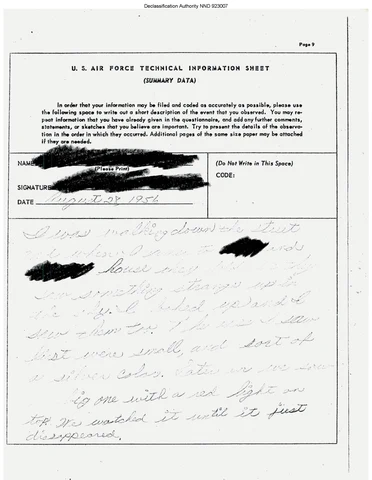 Declassification Authority NND 923007
Page 9
U. S. AIR FORCE TECHNICAL INFORMATION SHEET
(SUMMARY DATA)
In order that your information may be filed and coded as accurately as possible, please use
the following space to write out a short description of the event that you observed. You may re-
peat information that you have already given in the questionnaire, and add any further comments,
statements, or sketches that you believe are important. Try to present the details of the observa-
tion in the order in which they occurred. Additional pages of the same size paper may be attached
if they are needed.
NAME
(Please Print)
(Do Not Write in This Space)
CODE:
SIGNATURE
DATE August 28, 1956
I was walking down the street
when I came to
house
saw something strange up in
the sky. I looked up and I
saw them too. The ones I saw
first were small, and sort of
a silver color. Later on we saw
big one with a red light on
top. We watched it until it just
disappeared.